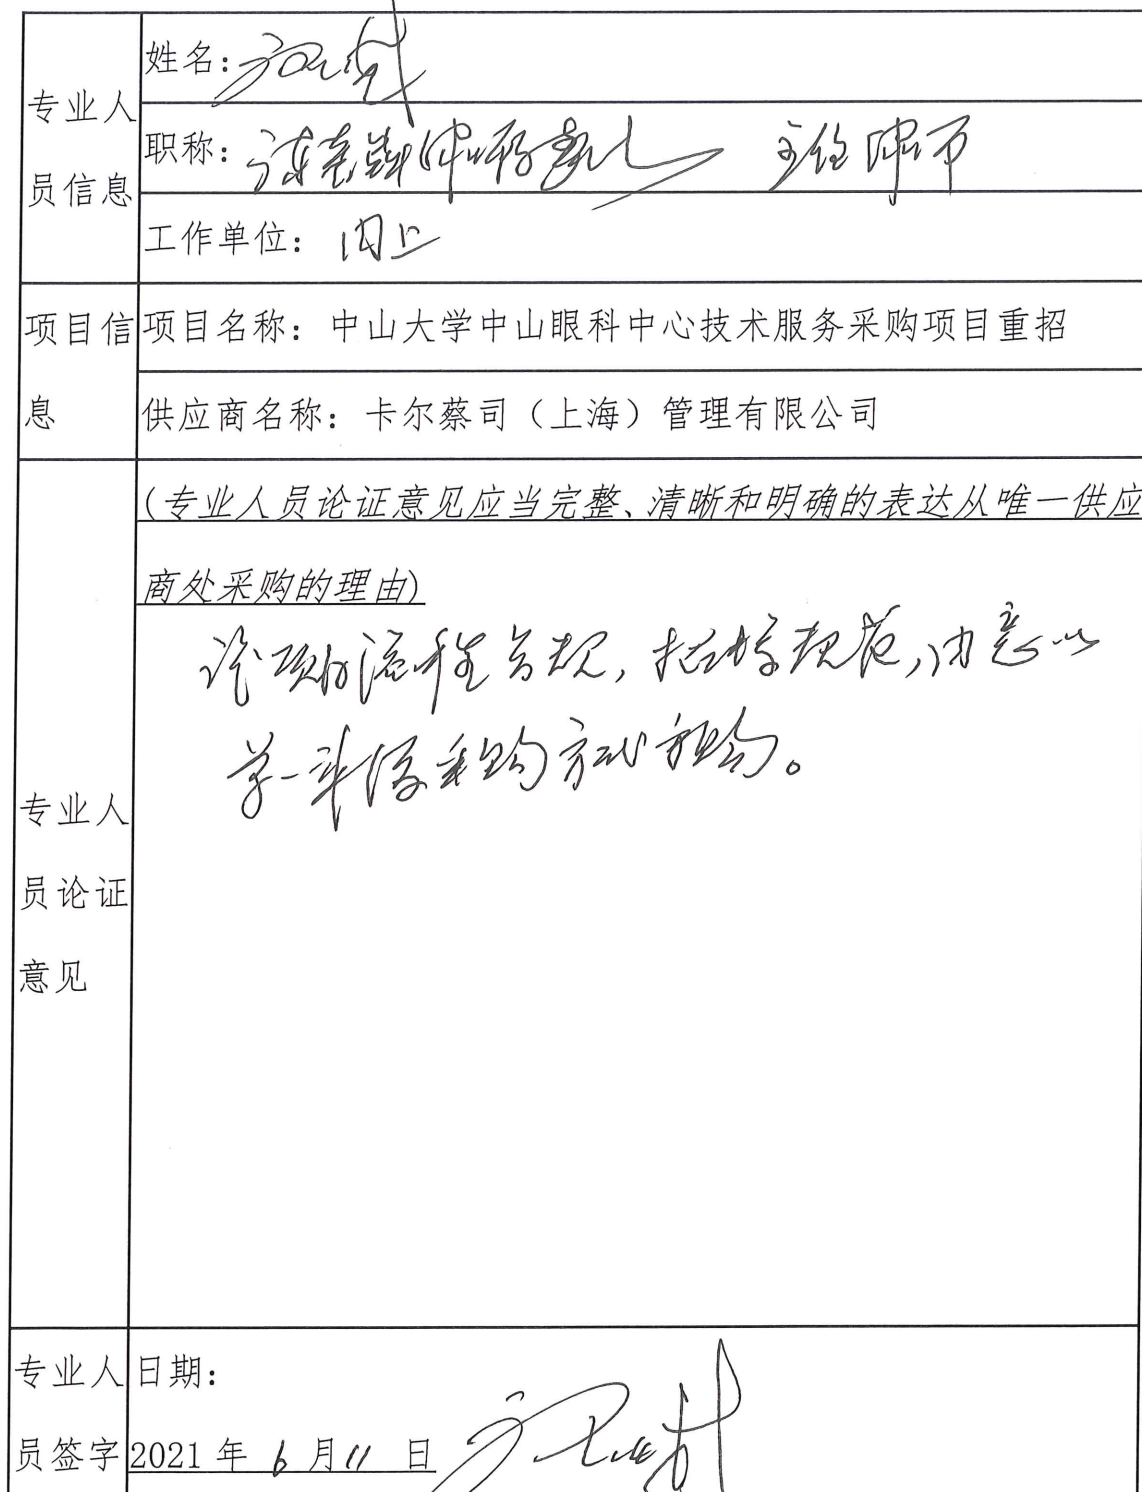 专业人员信息
姓名：
职称： 主任律师
工作单位： 同上
项目信息
项目名称：中山大学中山眼科中心技术服务采购项目重招
供应商名称：卡尔蔡司（上海）管理有限公司
专业人员论证意见
(专业人员论证意见应当完整、清晰和明确的表达从唯一供应
商处采购的理由)
该项目流程合规，招标规范，同意以
单一来源采购方式采购。
专业人员签字
日期：
2021 年 6 月 11 日